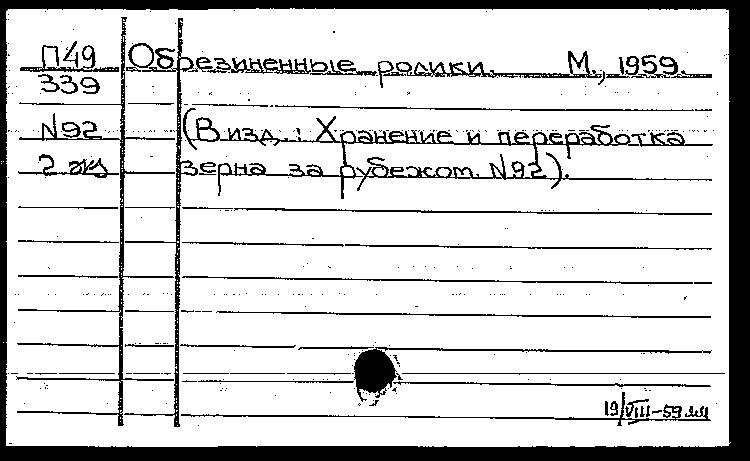 П49 Обрезиненные ролики. М., 1959.
339
N92 (В изд.: Хранение и переработка
2 экз зерна за рубежом. N92).
19/VIII-59